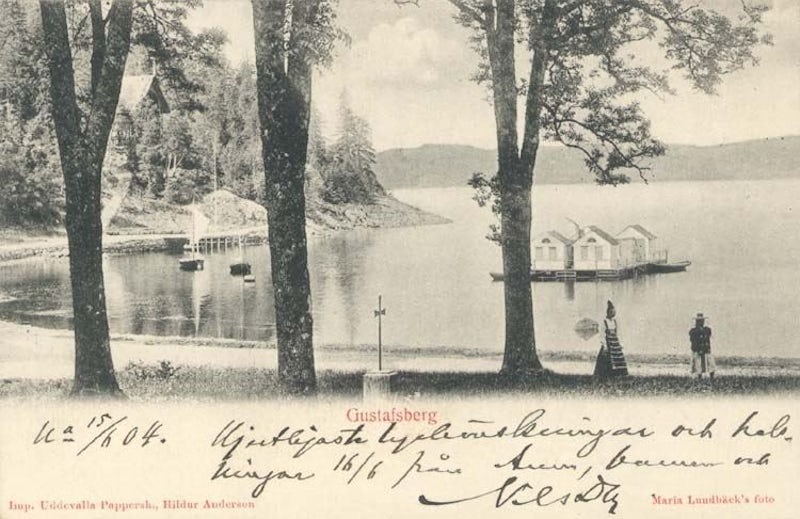 Gustafsberg
Ua 15/6 04. Hjertligaste lyckönskningar och hels-
ningar 16/6 från barnen och
Imp. Uddevalla Pappersh., Hildur Anderson
Maria Lundbäck's foto